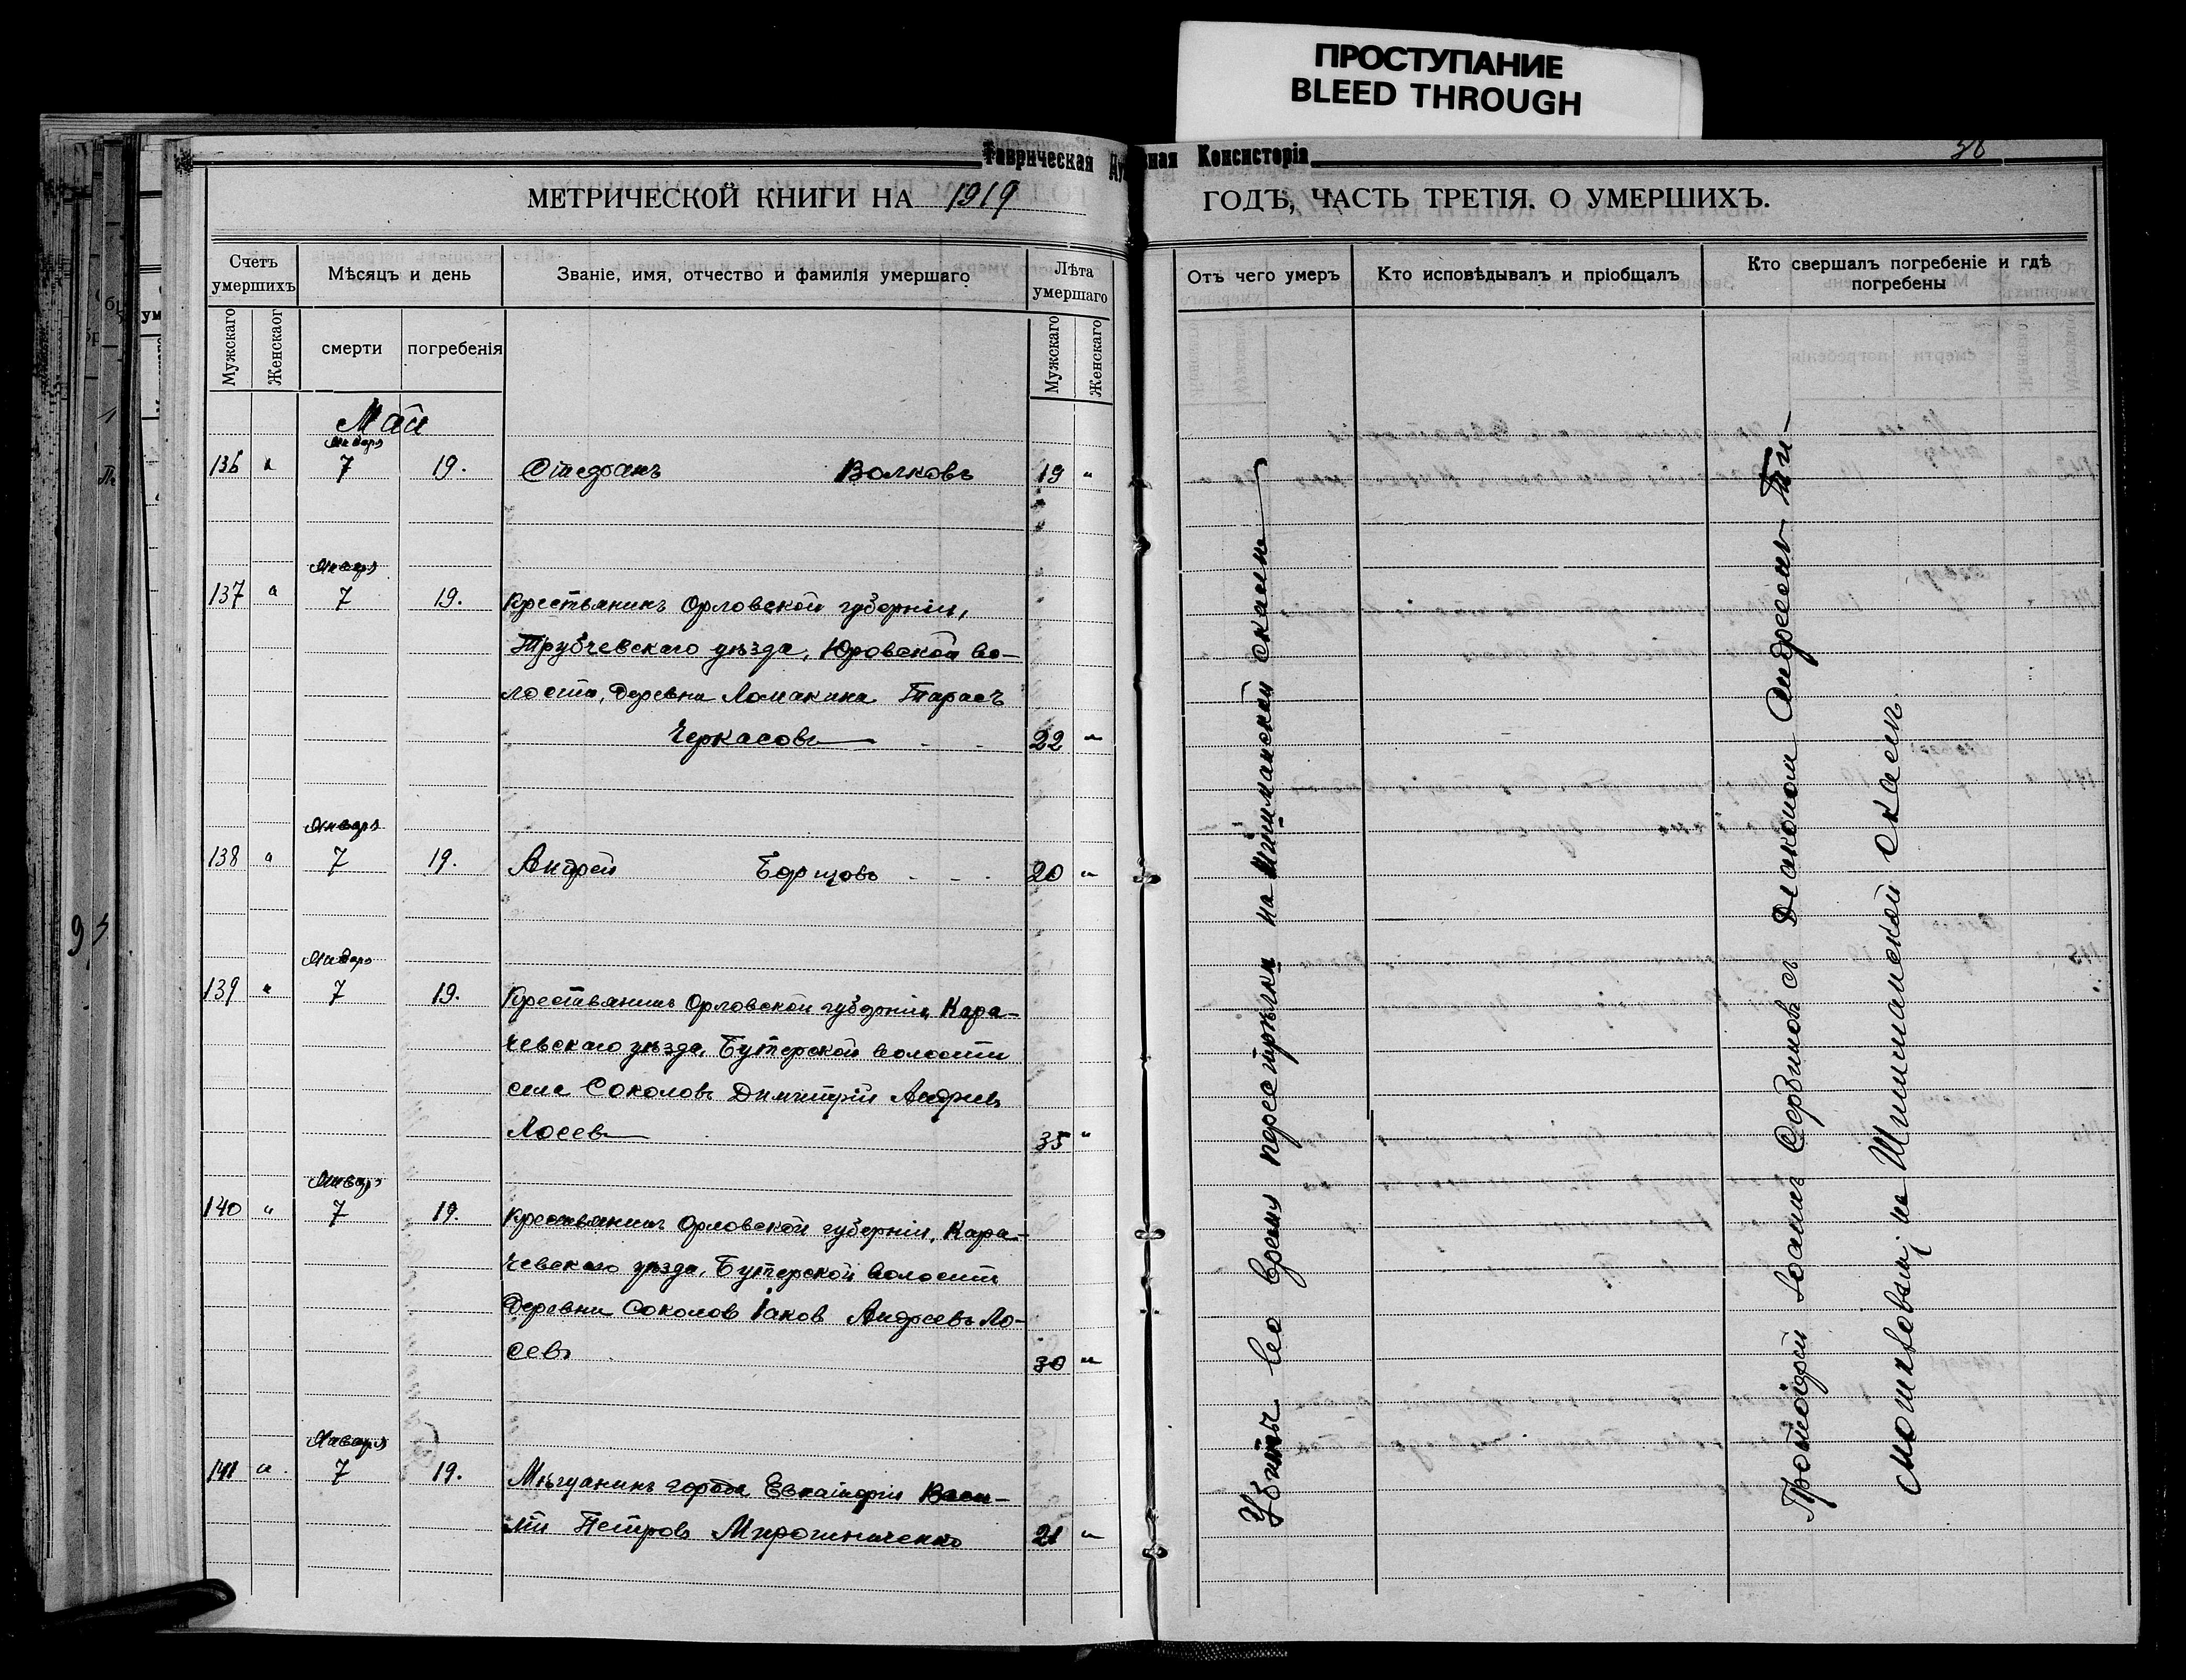 ПРОСТУПАНИЕ
BLEED THROUGH
Таврическая Духовная Консисторія
МЕТРИЧЕСКОЙ КНИГИ НА 1919
ГОДЪ, ЧАСТЬ ТРЕТІЯ. О УМЕРШИХЪ.
Счетъ умершихъ
Мѣсяцъ и день
Званіе, имя, отчество и фамилія умершаго
Лѣта умершаго
Отъ чего умеръ
Кто исповѣдывалъ и пріобщалъ
Кто свершалъ погребеніе и гдѣ погребены
Мужскаго
Женскаог
смерти
погребенія
Мужскаго
Женскаго
Май
Января
136 " 7 19. Стефанъ Волковъ 19 "
Января
137 " 7 19. Крестьянинъ Орловской губерніи,
Трубчевскаго уѣзда, Юровской во-
лости, деревни Ломакина Тарасъ
Черкасовъ 22 "
Января
138 " 7 19. Андрей Борщовъ 20 "
Января
139 " 7 19. Крестьянинъ Орловской губерніи, Кара-
чевскаго уѣзда, Бутерской волости
села Соколовъ Димитрій Андреевъ
Лосевъ 35 "
Января
140 " 7 19. Крестьянинъ Орловской губерніи, Кара-
чевскаго уѣзда, Бутерской волости
деревни Соколовъ Іаковъ Андреевъ Ло-
севъ 30 "
Января
141 " 7 19. Мѣщанинъ города Евпаторіи Васи-
лій Петровъ Мирошниченко 21 "
Убитъ во время перестрѣлки на Шишманской скалѣ
Протоіерей Іоаннъ Сербиновъ съ Діакономъ Андреемъ Ти-
мошковымъ, на Шишманской скалѣ